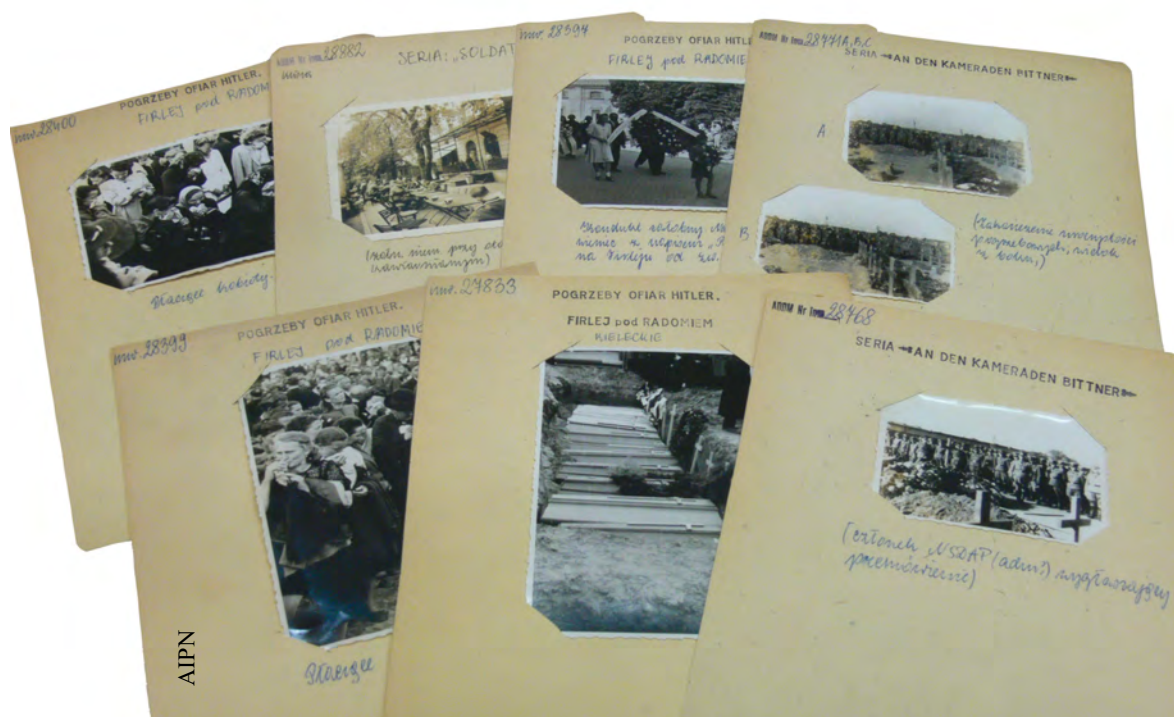 inw. 28400
POGRZEBY OFIAR HITLER.
FIRLEJ pod RADOMIE
Płaczące kobiety.
28882
SERIA: „SOLDAT
inw. 28394
POGRZEBY OFIAR HITLE
FIRLEJ pod RADOMIE
Kondukt żałobny
wieniec z napisem
na Firleju od
28471A,B,C
SERIA AN DEN KAMERADEN BITTNER
A.
B
(Zakończenie uroczystości
pogrzebowych, widok
z boku,)
inw. 28399
POGRZEBY OFIAR HITLER.
FIRLEJ pod RADOMIE
Płaczące
inw. 27833
POGRZEBY OFIAR HITLER.
FIRLEJ pod RADOMIEM
KIELECKIE
28468
SERIA AN DEN KAMERADEN BITTNER
(członek NSDAP (adm?) wygłaszający
przemówienie)
AIPN